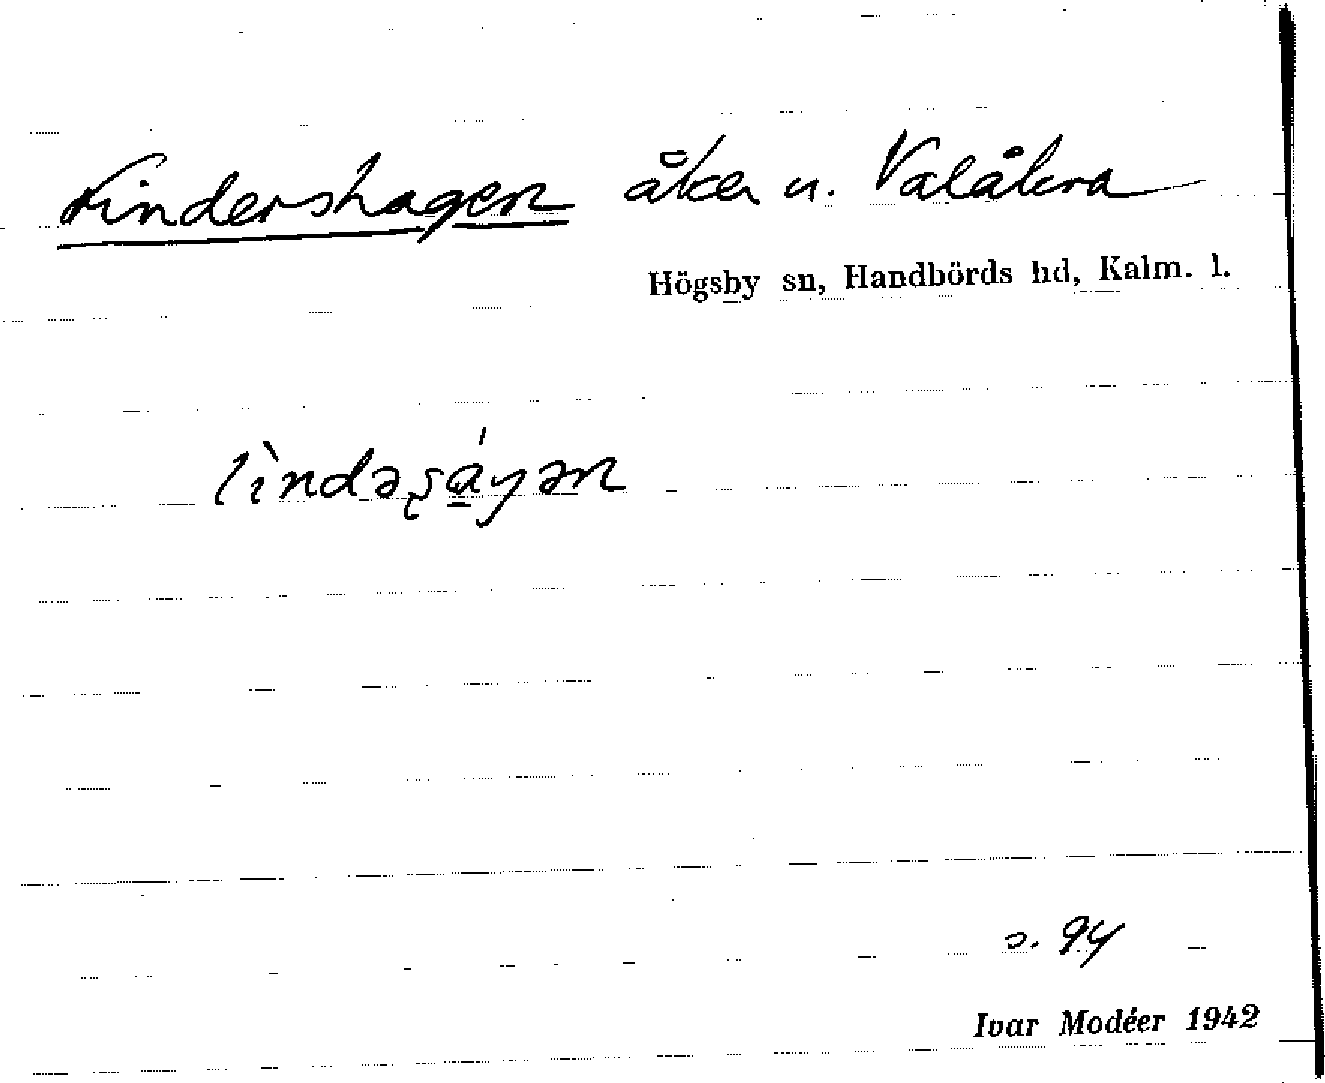 Lindershagen åker u. Valåkra
Högsby sn, Handbörds hd, Kalm. l.
lìndəʂá̲yən
s. 94
Ivar Modéer 1942